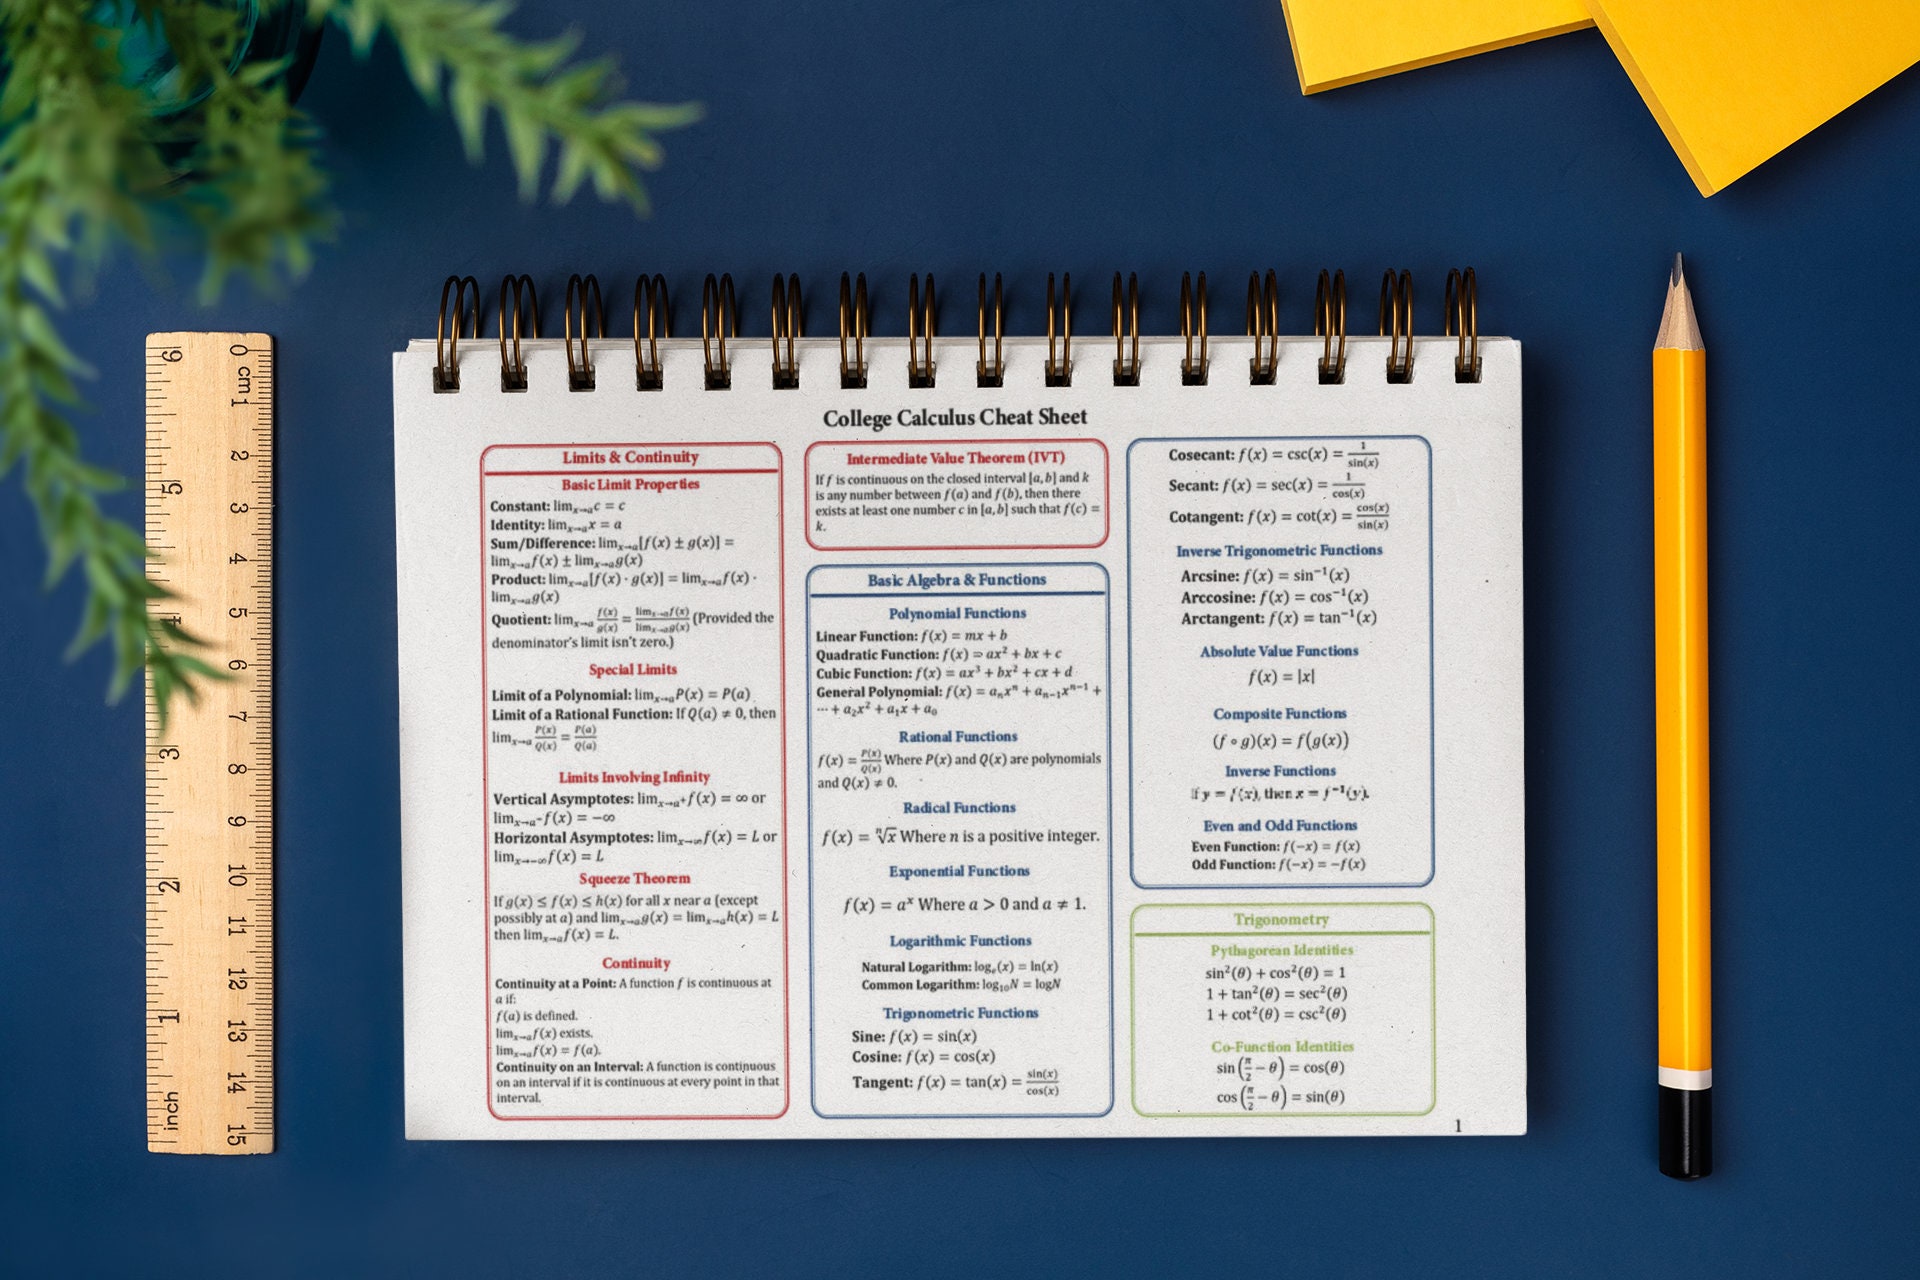 College Calculus Cheat Sheet
Limits & Continuity
Basic Limit Properties
Constant: limₓ→ₐc = c
Identity: limₓ→ₐx = a
Sum/Difference: limₓ→ₐ[f(x) ± g(x)] =
limₓ→ₐf(x) ± limₓ→ₐg(x)
Product: limₓ→ₐ[f(x) · g(x)] = limₓ→ₐf(x) ·
limₓ→ₐg(x)
Quotient: limₓ→ₐ f(x)/g(x) = limₓ→ₐf(x)/limₓ→ₐg(x) (Provided the
denominator's limit isn't zero.)
Special Limits
Limit of a Polynomial: limₓ→ₐP(x) = P(a)
Limit of a Rational Function: If Q(a) ≠ 0, then
limₓ→ₐ P(x)/Q(x) = P(a)/Q(a)
Limits Involving Infinity
Vertical Asymptotes: limₓ→ₐ⁺f(x) = ∞ or
limₓ→ₐ⁻f(x) = −∞
Horizontal Asymptotes: limₓ→∞f(x) = L or
limₓ→−∞f(x) = L
Squeeze Theorem
If g(x) ≤ f(x) ≤ h(x) for all x near a (except
possibly at a) and limₓ→ₐg(x) = limₓ→ₐh(x) = L
then limₓ→ₐf(x) = L.
Continuity
Continuity at a Point: A function f is continuous at
a if:
f(a) is defined.
limₓ→ₐf(x) exists.
limₓ→ₐf(x) = f(a).
Continuity on an Interval: A function is continuous
on an interval if it is continuous at every point in that
interval.
Intermediate Value Theorem (IVT)
If f is continuous on the closed interval [a, b] and k
is any number between f(a) and f(b), then there
exists at least one number c in [a, b] such that f(c) =
k.
Basic Algebra & Functions
Polynomial Functions
Linear Function: f(x) = mx + b
Quadratic Function: f(x) = ax² + bx + c
Cubic Function: f(x) = ax³ + bx² + cx + d
General Polynomial: f(x) = aₙxⁿ + aₙ₋₁xⁿ⁻¹ +
⋯ + a₂x² + a₁x + a₀
Rational Functions
f(x) = P(x)/Q(x) Where P(x) and Q(x) are polynomials
and Q(x) ≠ 0.
Radical Functions
f(x) = ⁿ√x Where n is a positive integer.
Exponential Functions
f(x) = aˣ Where a > 0 and a ≠ 1.
Logarithmic Functions
Natural Logarithm: logₑ(x) = ln(x)
Common Logarithm: log₁₀N = logN
Trigonometric Functions
Sine: f(x) = sin(x)
Cosine: f(x) = cos(x)
Tangent: f(x) = tan(x) = sin(x)/cos(x)
Cosecant: f(x) = csc(x) = 1/sin(x)
Secant: f(x) = sec(x) = 1/cos(x)
Cotangent: f(x) = cot(x) = cos(x)/sin(x)
Inverse Trigonometric Functions
Arcsine: f(x) = sin⁻¹(x)
Arccosine: f(x) = cos⁻¹(x)
Arctangent: f(x) = tan⁻¹(x)
Absolute Value Functions
f(x) = |x|
Composite Functions
(f ∘ g)(x) = f(g(x))
Inverse Functions
If y = f(x), then x = f⁻¹(y).
Even and Odd Functions
Even Function: f(−x) = f(x)
Odd Function: f(−x) = −f(x)
Trigonometry
Pythagorean Identities
sin²(θ) + cos²(θ) = 1
1 + tan²(θ) = sec²(θ)
1 + cot²(θ) = csc²(θ)
Co-Function Identities
sin(π/2 − θ) = cos(θ)
cos(π/2 − θ) = sin(θ)
1
0 cm 1 2 3 4 5 6 7 8 9 10 11 12 13 14 15
inch 1 2 3 4 5 6